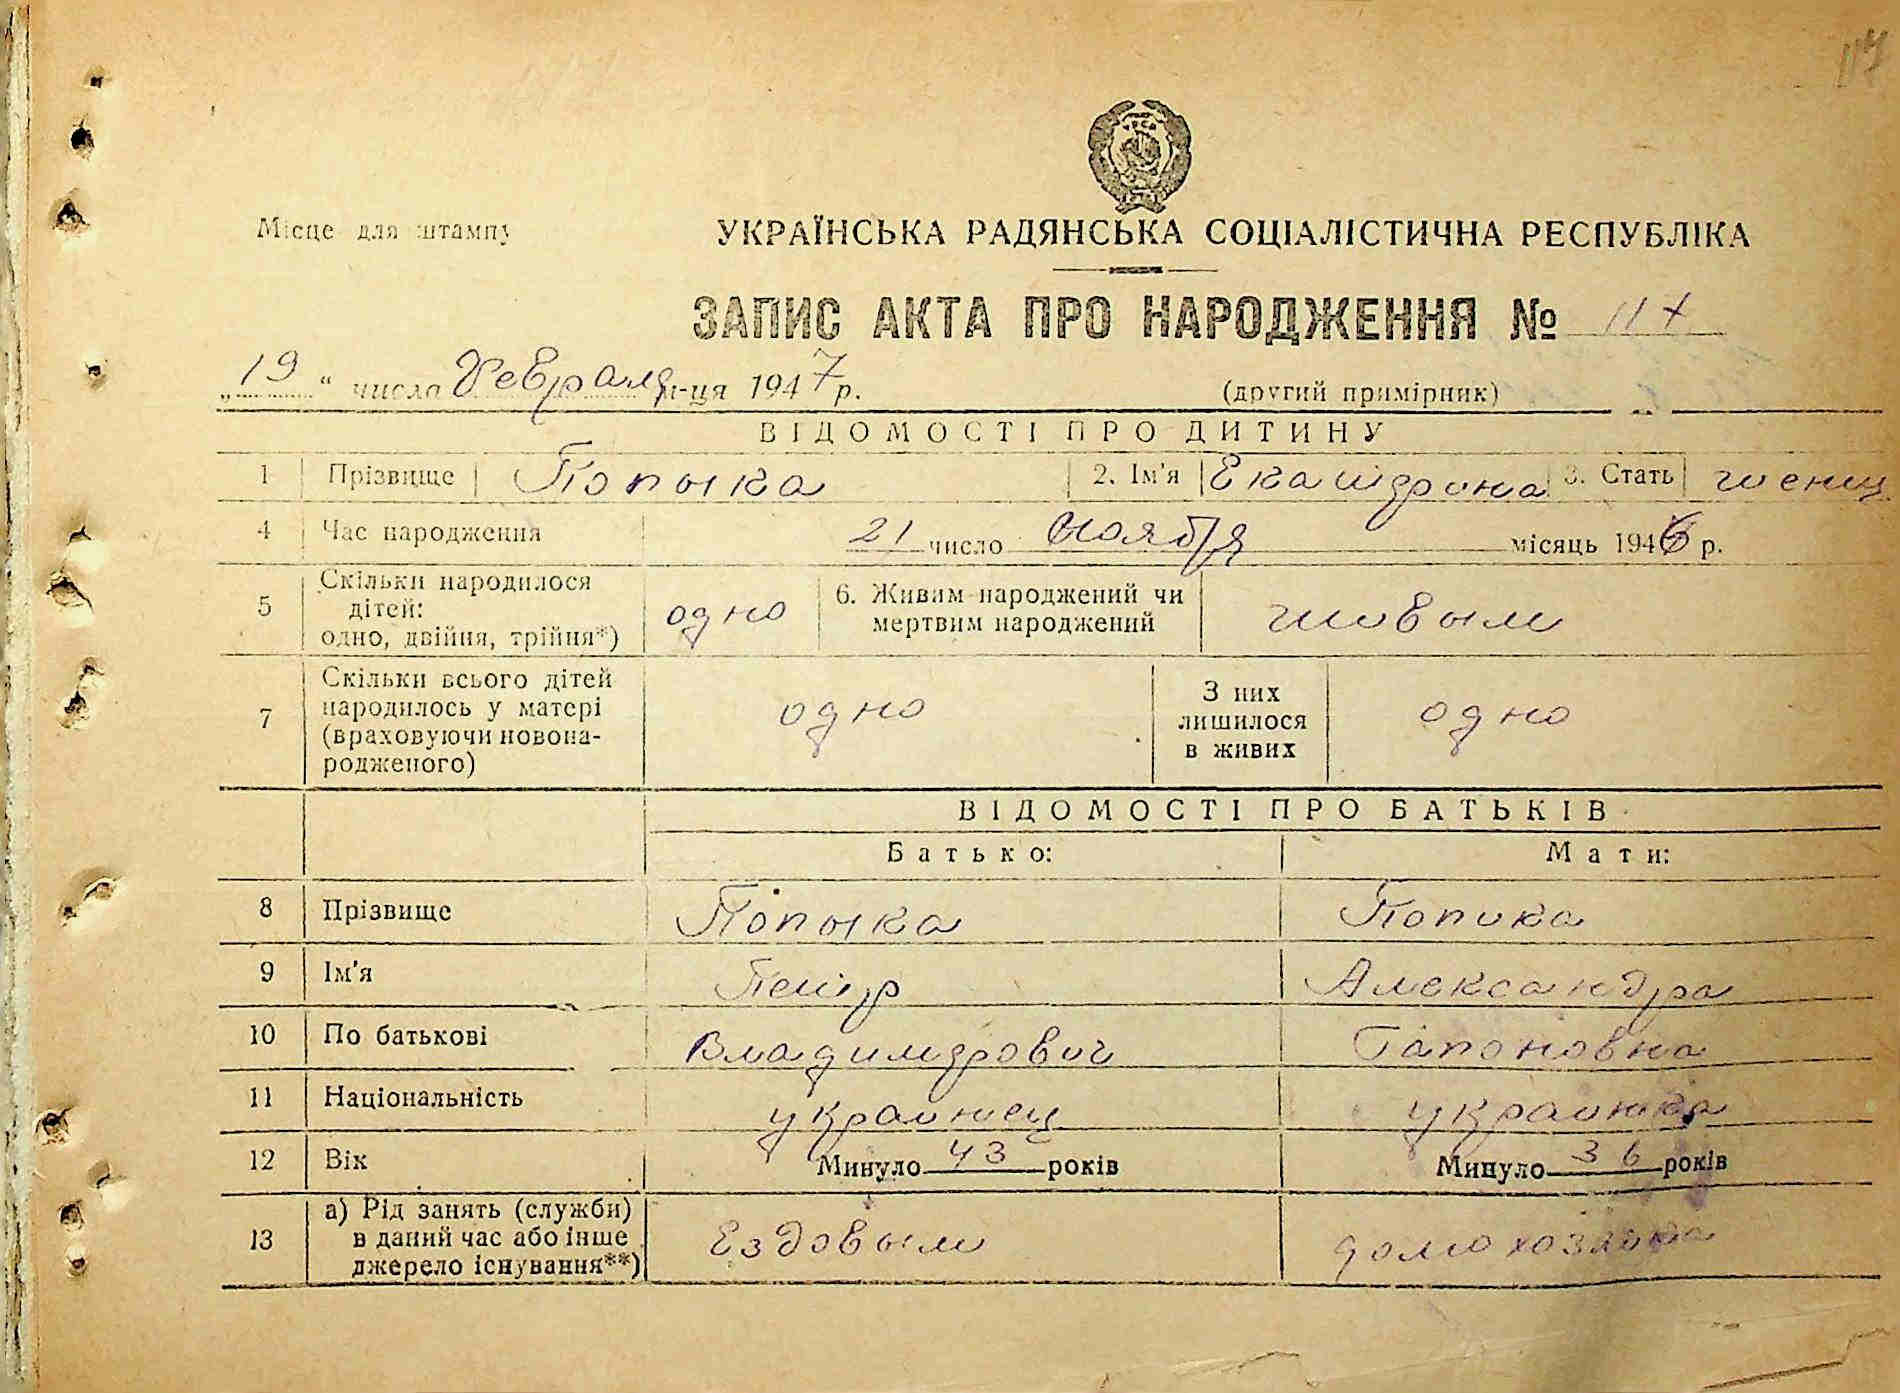 117
УРСР
Місце для штампу
УКРАЇНСЬКА РАДЯНСЬКА СОЦІАЛІСТИЧНА РЕСПУБЛІКА
ЗАПИС АКТА ПРО НАРОДЖЕННЯ № 117
„19“ числа Февраля м-ця 1947 р. (другий примірник)
ВІДОМОСТІ ПРО ДИТИНУ
1 Прізвище Попыка 2. Ім'я Екатирина 3. Стать женщ
4 Час народження 21 число Ноября місяць 1946 р.
5 Скільки народилося дітей: одно, двійня, трійня*) одно 6. Живим народжений чи мертвим народжений живым
7 Скільки всього дітей народилось у матері (враховуючи новонародженого) одно З них лишилося в живих одно
ВІДОМОСТІ ПРО БАТЬКІВ
Батько: Мати:
8 Прізвище Попыка Попика
9 Ім'я Петр Александра
10 По батькові Владимирович Гапоновна
11 Національність украинец украинка
12 Вік Минуло 43 років Минуло 36 років
13 а) Рід занять (служби) в даний час або інше джерело існування**) Ездовым домохозяйка